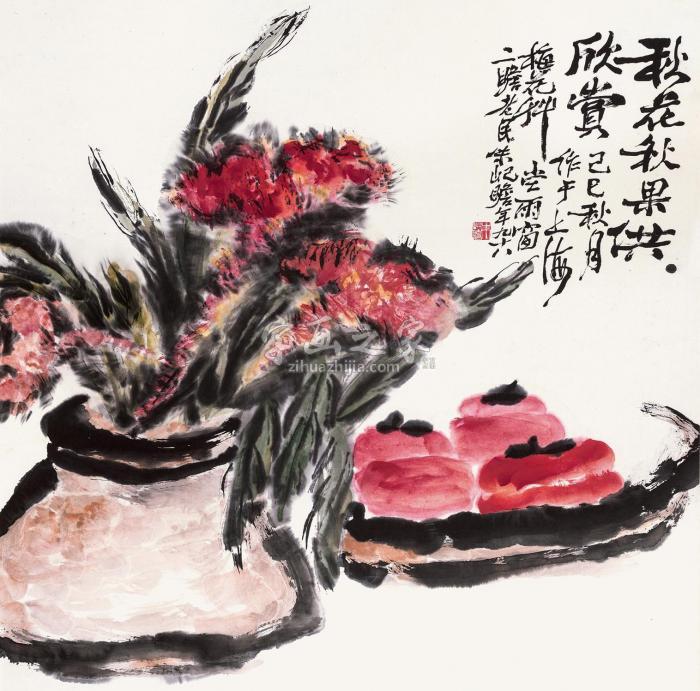 秋花秋果供
欣賞 己巳秋月
作于上海
梅花艸堂雨窗
二瞻老民朱屺瞻年九十八
字画之家
zihuazhijia.com